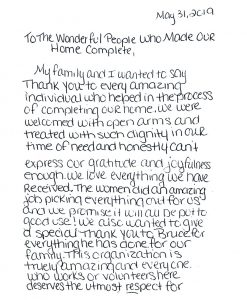 May 31, 2019
To The Wonderful People Who Made Our
Home Complete,
My family and I wanted to say
Thank you to every amazing
individual who helped in the process
of completing our home. We were
welcomed with open arms and
treated with such dignity in our
time of need and honestly can't
express our gratitude and joyfulness
enough. We love everything we have
Received. The women did an amazing
job picking everything out for us
and we promise it will all be put to
good use! We also wanted to give
a special thank you to Bruce for
everything he has done for our
family. This organization is
truely amazing and everyone
who works or volunteers here
deserves the utmost respect for